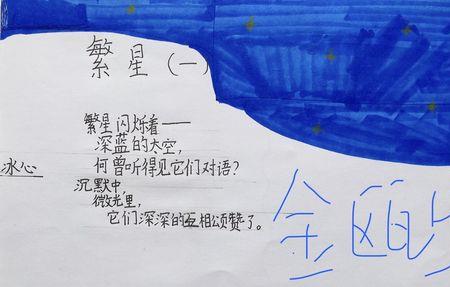 繁星（一）
冰心
繁星闪烁着——
深蓝的太空，
何曾听得见它们对语？
沉默中，
微光里，
它们深深的互相颂赞了。